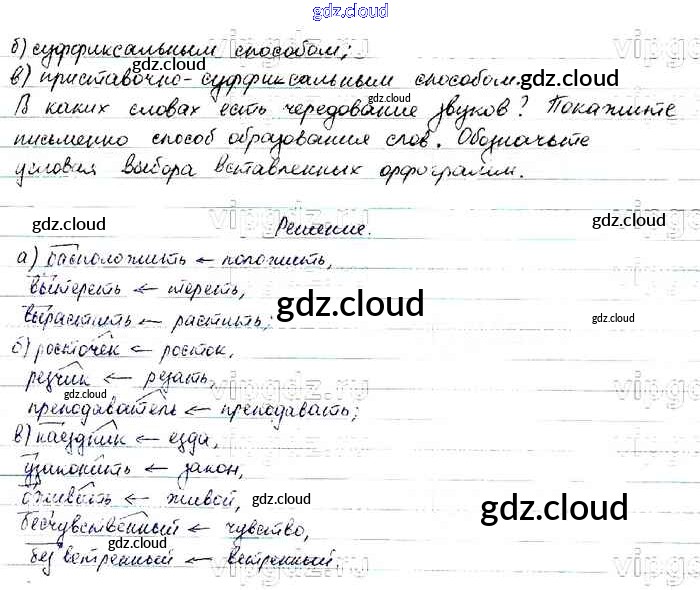 gdz.cloud
б) суффиксальным способом;
в) приставочно-суффиксальным способом. gdz.cloud
В каких словах есть чередование звуков? Покажите
gdz.cloud
письменно способ образования слов. Обозначьте
условия выбора вставленных орфограмм.
gdz.cloud vipgdz.ru gdz.cloud
Решение.
а) расположить ← положить,
вытереть ← тереть,
gdz.cloud
вырастить ← растить; gdz.cloud
б) росточек ← росток,
резчик ← резать,
gdz.cloud vipgdz.ru
преподаватель ← преподавать;
в) наездник ← езда,
узаконить ← закон,
оживать ← живой, gdz.cloud
gdz.cloud
бесчувственный ← чувство,
gdz.cloud
безветренный ← ветренный.
vipgdz.ru